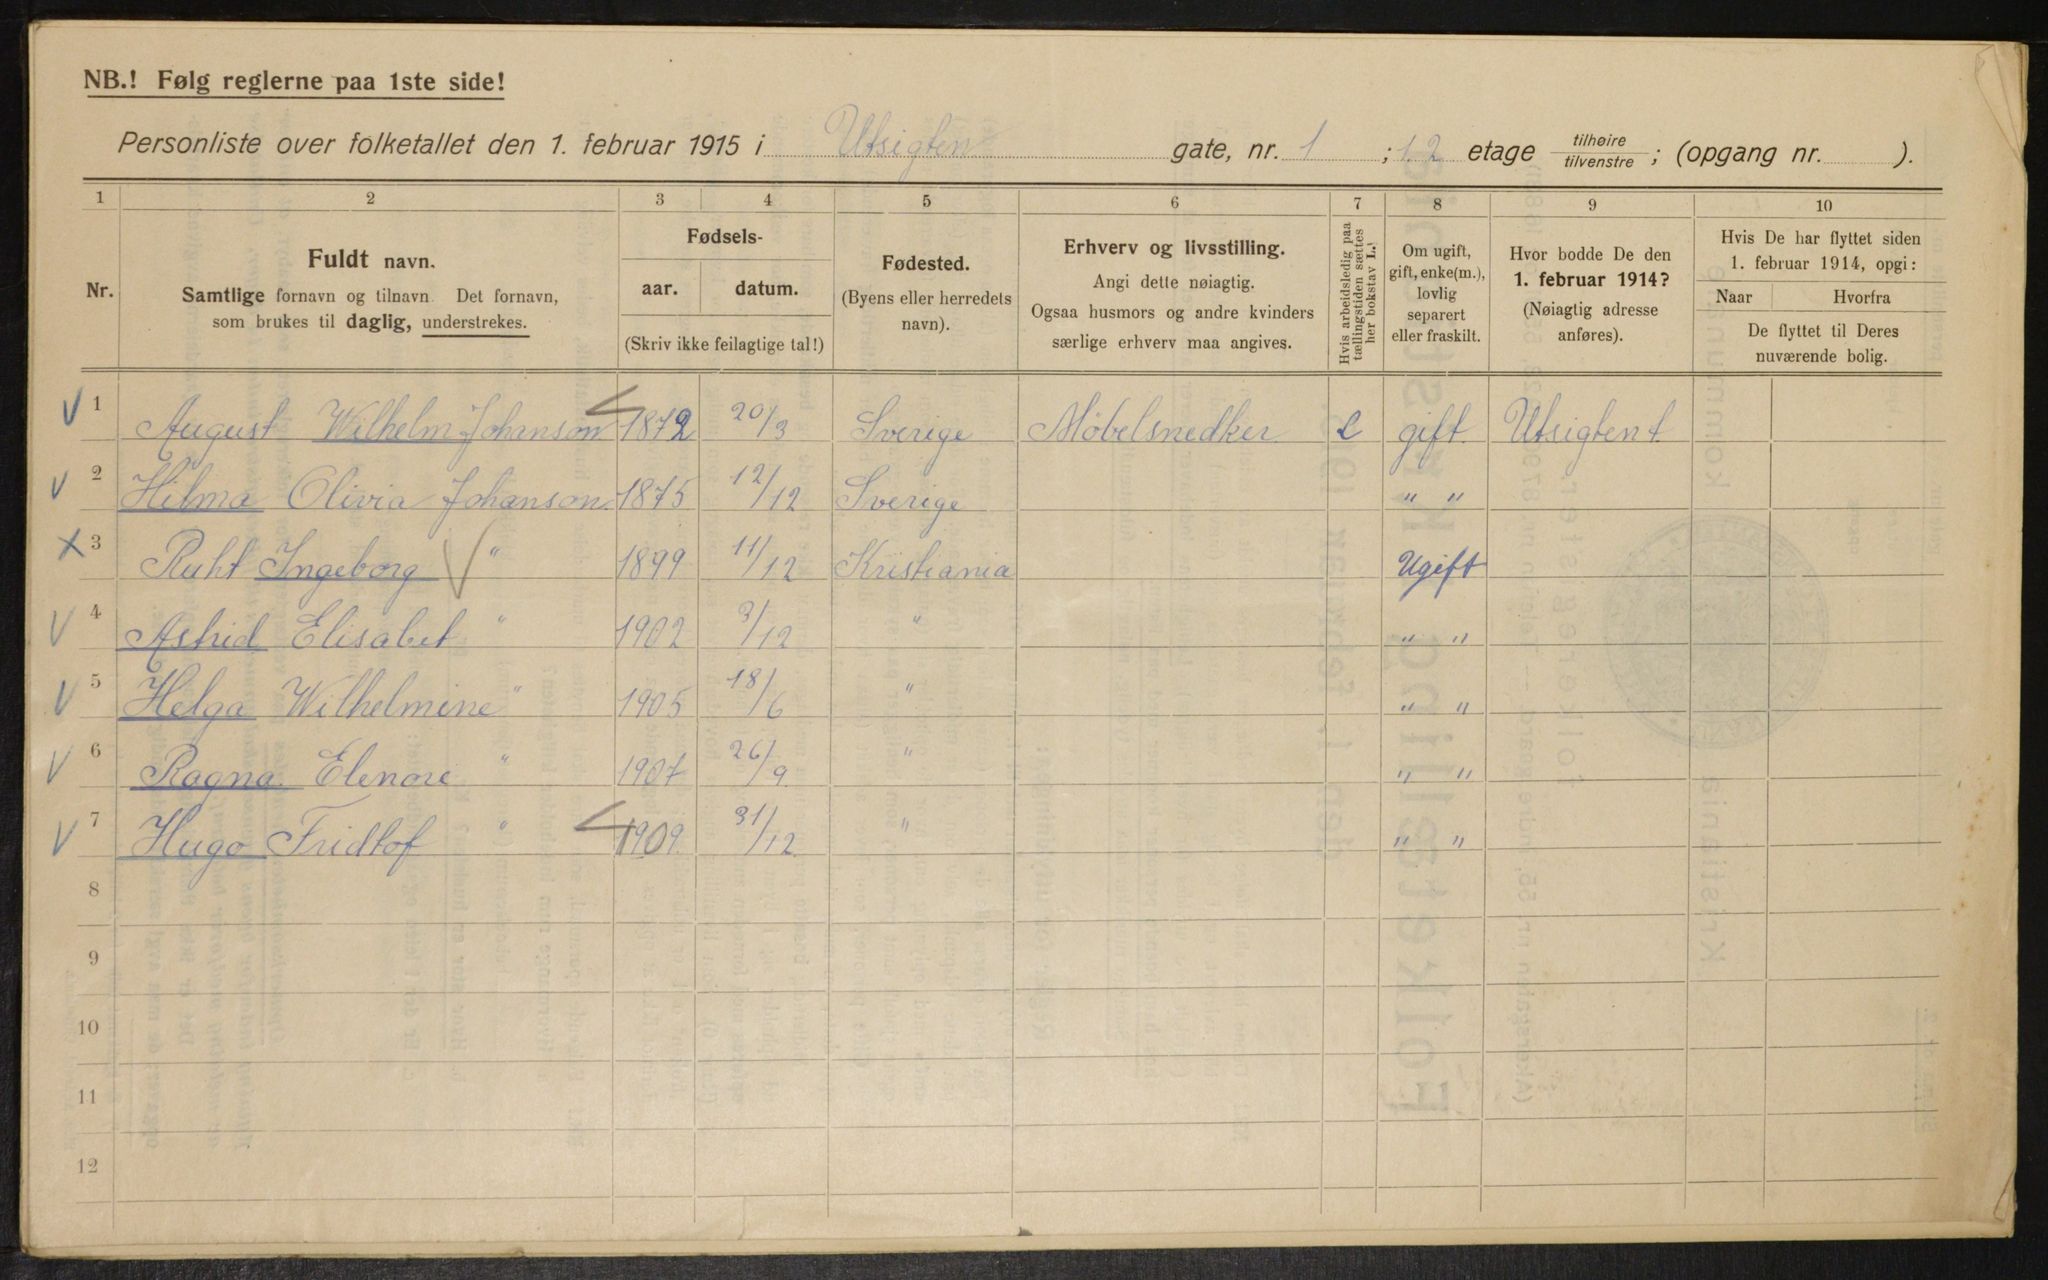 NB.! Følg reglerne paa 1ste side!
Personliste over folketallet den 1. februar 1915 i Utsigten gate, nr. 1 ; 1. 2 etage tilhøire/tilvenstre ; (opgang nr. ).
1 2 3 4 5 6 7 8 9 10
Nr.
Fuldt navn.
Samtlige fornavn og tilnavn. Det fornavn,
som brukes til daglig, understrekes.
Fødsels-
aar. datum.
(Skriv ikke feilagtige tal!)
Fødested.
(Byens eller herredets
navn).
Erhverv og livsstilling.
Angi dette nøiagtig.
Ogsaa husmors og andre kvinders
særlige erhverv maa angives.
Hvis arbeidsledig paa
tællingstiden sættes
her bokstav L.!
Om ugift,
gift, enke(m.),
lovlig
separert
eller fraskilt.
Hvor bodde De den
1. februar 1914?
(Nøiagtig adresse
anføres).
Hvis De har flyttet siden
1. februar 1914, opgi:
Naar Hvorfra
De flyttet til Deres
nuværende bolig.
1 August Wilhelm Johanson 1872 20/3 Sverige Møbelsnedker L gift Utsigten 1.
2 Hilma Olivia Johanson 1875 12/12 Sverige " "
3 Ruht Ingeborg " 1899 11/12 Kristiania Ugift
4 Astrid Elisabet " 1902 3/12 " " "
5 Helga Wilhelmine " 1905 18/6 " " "
6 Ragna Elenore " 1907 26/9 " " "
7 Hugo Fridtof " 1909 31/12 " " "
8
9
10
11
12